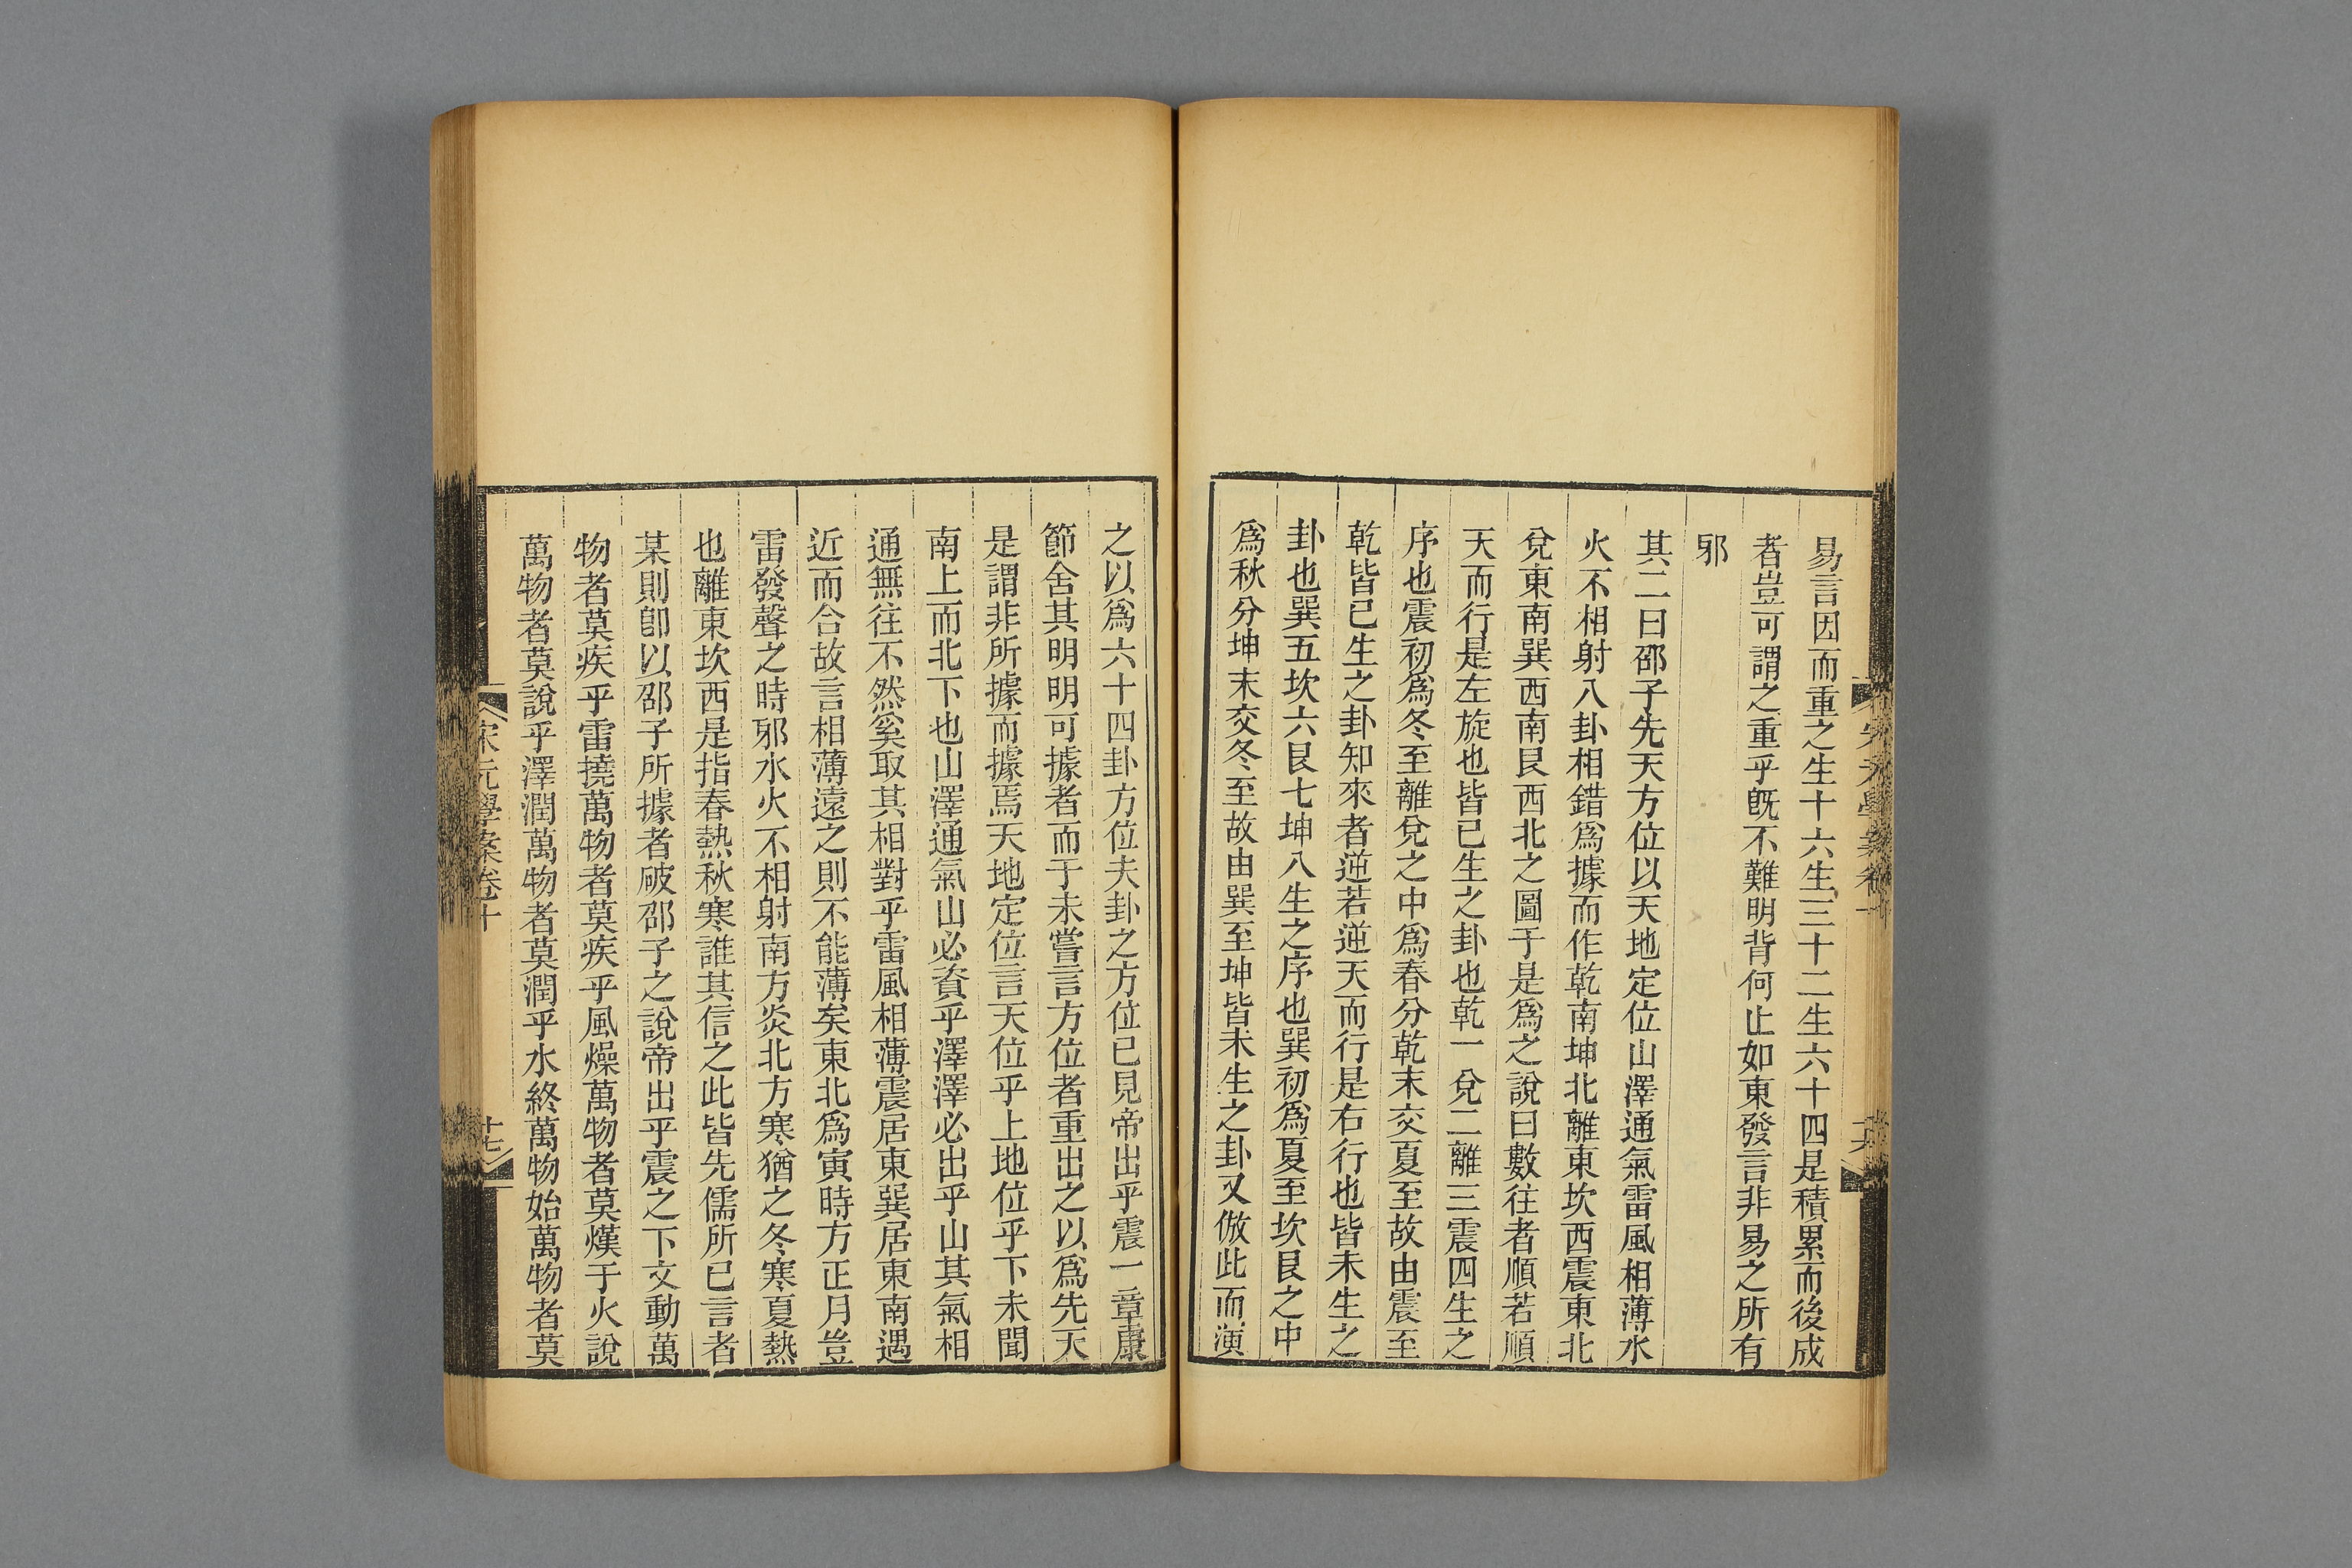 易言因而重之生十六生三十二生六十四是積累而後成
者豈可謂之重乎旣不難明背何止如東發言非易之所有
邪
其二曰邵子先天方位以天地定位山澤通氣雷風相薄水
火不相射八卦相錯爲據而作乾南坤北離東坎西震東北
兌東南巽西南艮西北之圖于是爲之說曰數往者順若順
天而行是左旋也皆已生之卦也乾一兌二離三震四生之
序也震初爲冬至離兌之中爲春分乾末交夏至故由震至
乾皆已生之卦知來者逆若逆天而行是右行也皆未生之
卦也巽五坎六艮七坤八生之序也巽初爲夏至坎艮之中
爲秋分坤末交冬至故由巽至坤皆未生之卦又倣此而演
之以爲六十四卦方位夫卦之方位已見帝出乎震一章康
節舍其明明可據者而于未嘗言方位者重出之以爲先天
是謂非所據而據焉天地定位言天位乎上地位乎下未聞
南上而北下也山澤通氣山必資乎澤澤必出乎山其氣相
通無往不然奚取其相對乎雷風相薄震居東巽居東南遇
近而合故言相薄遠之則不能薄矣東北爲寅時方正月豈
雷發聲之時邪水火不相射南方炎北方寒猶之冬寒夏熱
也離東坎西是指春熱秋寒誰其信之此皆先儒所已言者
某則卽以邵子所據者破邵子之說帝出乎震之下文動萬
物者莫疾乎雷撓萬物者莫疾乎風燥萬物者莫熯于火說
萬物者莫說乎澤潤萬物者莫潤乎水終萬物始萬物者莫
宋元學案卷十
十七